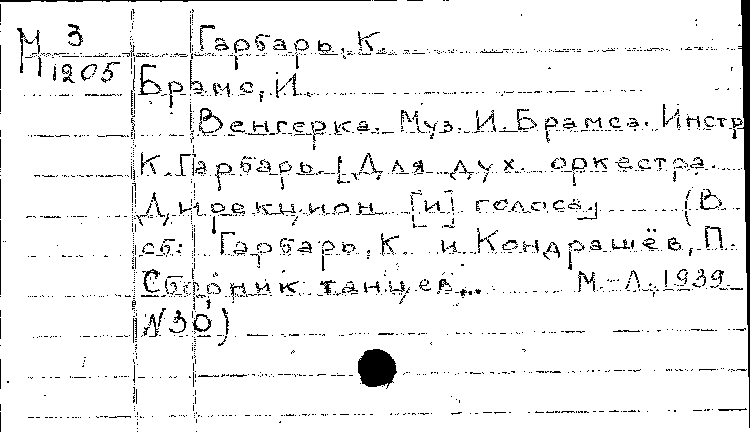 М 3 Гарбарь, К.
1205 Брамс, И.
Венгерка. Муз. И. Брамса. Инстр
К. Гарбарь. [Для дух. оркестра.
Дирекцион [и] голоса] (В
сб: Гарбарь, К. и Кондрашёв, П.
Сборник танцев... М-Л, 1939
N30)